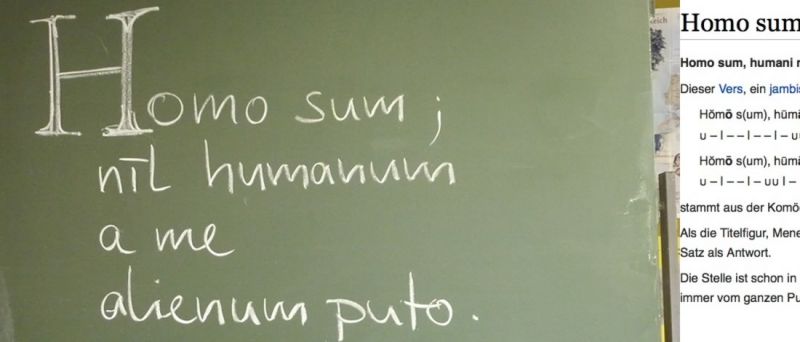 Homo sum ;
nīl humanum
a me
alienum puto.
Homo sum
Homo sum, humani
Dieser Vers, ein
Hŏmō s(um),
u – l – – l – – l – u
Hŏmō s(um),
u – l – – l – uu l –
stammt aus der
Als die Titelfigur,
Satz als Antwort.
Die Stelle ist schon in
immer vom ganzen